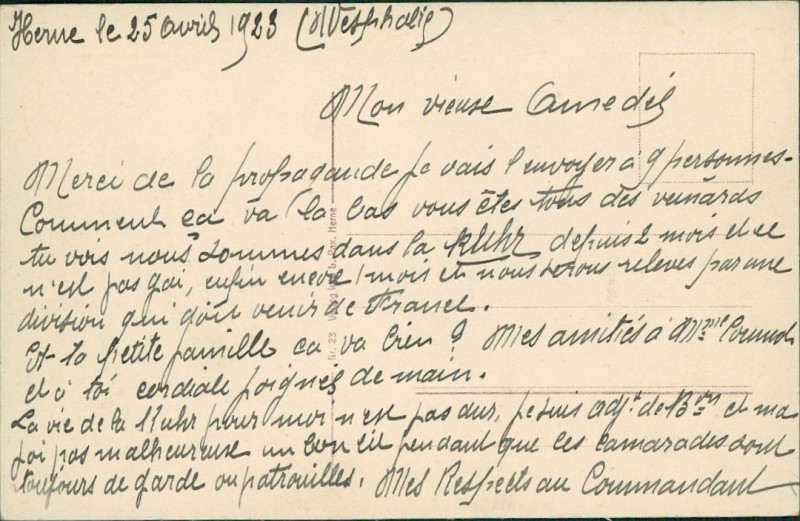 Herne le 25 Avril 1923 (Westphalie)
Mon vieuse Amedéé
Merci de la propagande je vais l'envoyer à 9 personnes-
Comment ça va la bas vous êtes tous des veinards
tu vois nous sommes dans la Ruhr depuis 2 mois et ce
n'est pas gai, enfin encore 1 mois et nous serons relevés par une
division qui doit venir de France.
Et ta petite famille ca va bien ? Mes amitiés à Mme
et à toi cordiale poignés de main.
La vie de la Ruhr pour moi n'est pas dur, je suis adjt de Bon et ma
foi pas malheureuse un bon lit pendant que les camarades sont
toujours de garde ou patrouilles. Mes Respects au Commandant
Nr. 23 Verlag Herne